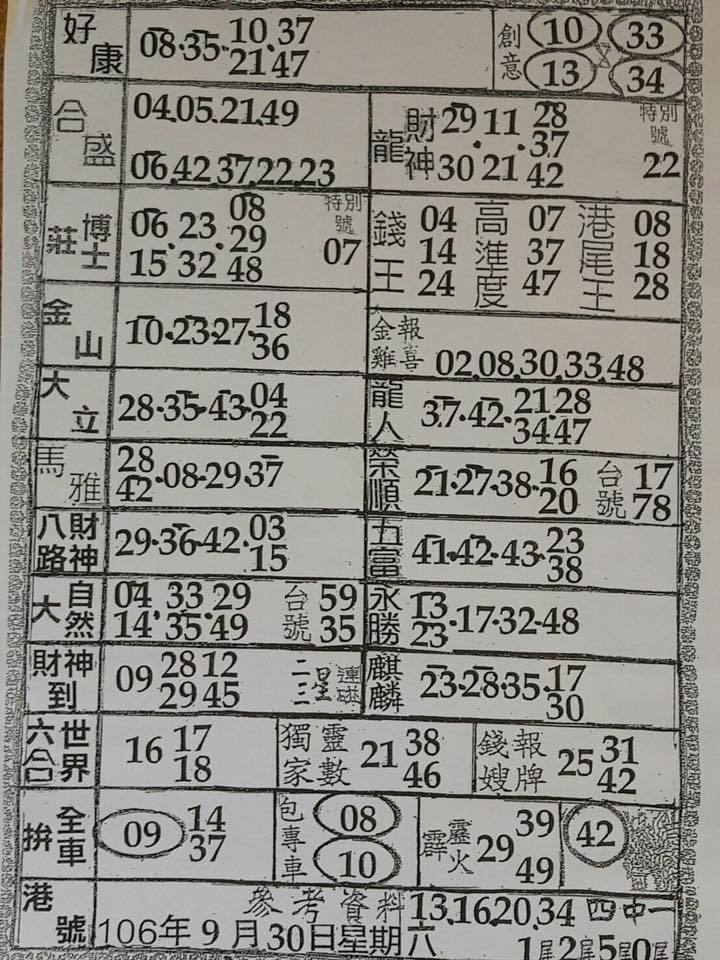 好康 08.35.10.37 21.47
創意 10 33 13 34
合盛 04.05.21.49
06.42.37.22.23
財神龍 29.11.28 37 30 21 42 特別號 22
博士莊 06.23.08 29 15 32 48 特別號 07
錢王 04 14 24 高進度 07 37 47 港尾王 08 18 28
金山 10.23.27.18 36
金雞報喜 02.08.30.33.48
大立 28.35.43.04 22
龍人 37.42.21.28 34.47
馬雅 28 42.08.29.37
榮順 21.27.38.16 20 台號 17 78
八路財神 29.36.42.03 15
五富 41.42.43.23 38
大自然 04.33.29 14.35.49 台號 59 35
永勝 13 23.17.32.48
財神到 09 28 12 29 45 二三星連碰
麒麟 23.28.35.17 30
六合世界 16 17 18
獨家靈數 21 38 46
錢嫂報牌 25 31 42
拚全車 09 14 37
包專車 08 10
霹靂火 29 39 49
42
港號 參考資料 13.16.20.34 四中一
106年9月30日星期六 1尾2尾5尾0尾